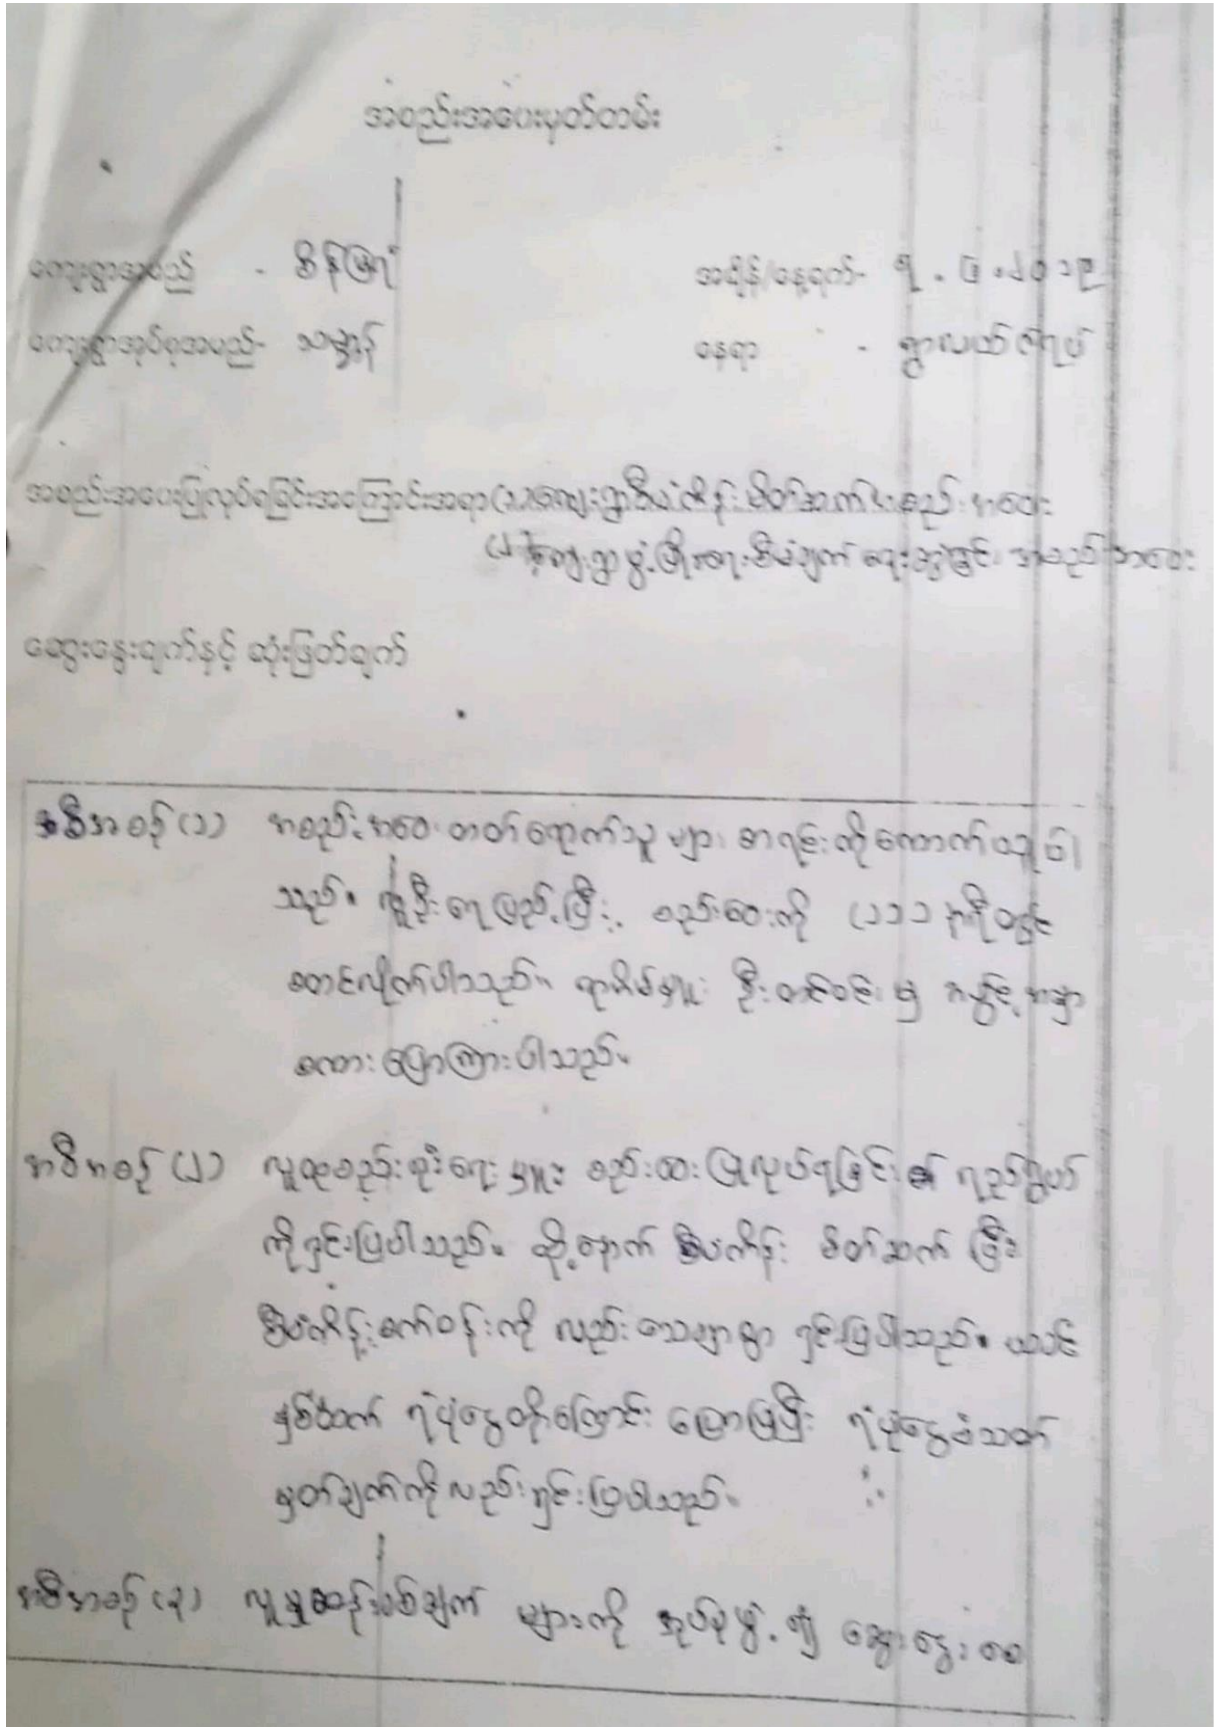 အစည်းအဝေးမှတ်တမ်း
ကျေးရွာအမည် - စိန်မြရုံ
အချိန်/နေ့ရက်- ၅.၆.၂၀၁၉
ကျေးရွာအုပ်စုအမည်-
နေရာ - ရွာလယ်ဇရပ်
အစည်းအဝေးပြုလုပ်ရခြင်းအကြောင်းအရာ (၁) ကျေးရွာစီမံကိန်းမိတ်ဆက်အစည်းအဝေး
(၂) ကျေးရွာဖွံ့ဖြိုးရေးစီမံချက်ရေးဆွဲခြင်းအစည်းအဝေး
ဆွေးနွေးချက်နှင့် ဆုံးဖြတ်ချက်
အစီအစဉ် (၁) အစည်းအဝေးတက်ရောက်သူများစာရင်းကိုကောက်ယူပါ
သည်။ လူဦးရေပြည့်ပြီး၊ စည်းဝေးကို (၁း၁၁) နာရီတွင်
စတင်လိုက်ပါသည်။ ရာအိမ်မှူး ဦးတင်ဝင်းမှ အဖွင့်အမှာ
စကားပြောကြားပါသည်။
အစီအစဉ် (၂) လူထုစည်းရုံးရေးမှူး စည်းဝေးပြုလုပ်ရခြင်း၏ ရည်ရွယ်ချက်
ကိုရှင်းပြပါသည်။ ထို့နောက် စီမံကိန်း မိတ်ဆက်ပြီး
စီမံကိန်းစက်ဝန်းကို လည်းသေချာစွာ ရှင်းပြပါသည်။ ယခင်
နှစ်ထက် ရံပုံငွေတိုးကြောင်း ပြောပြပြီး ရံပုံငွေခံသတ်
မှတ်ချက်ကိုလည်းရှင်းပြပါသည်။
အစီအစဉ် (၃) လူမှုဆန်းစစ်ချက် များကို အုပ်စုဖွဲ့၍ ဆွေးနွေးစေ